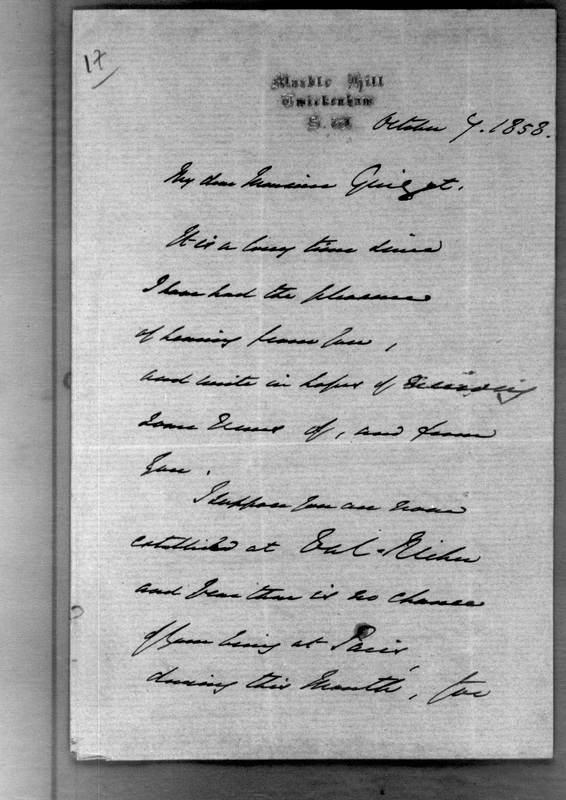 17
Marble Hill
Twickenham
S. W.
October 7. 1858.
My dear Monsieur Guizot.
It is a long time since
I have had the pleasure
of hearing from you,
and write in hopes of receiving
some news of, and from
you.
I suppose you are now
established at Val-Richer
and that there is no chance
of your being at Paris,
during this Month, for